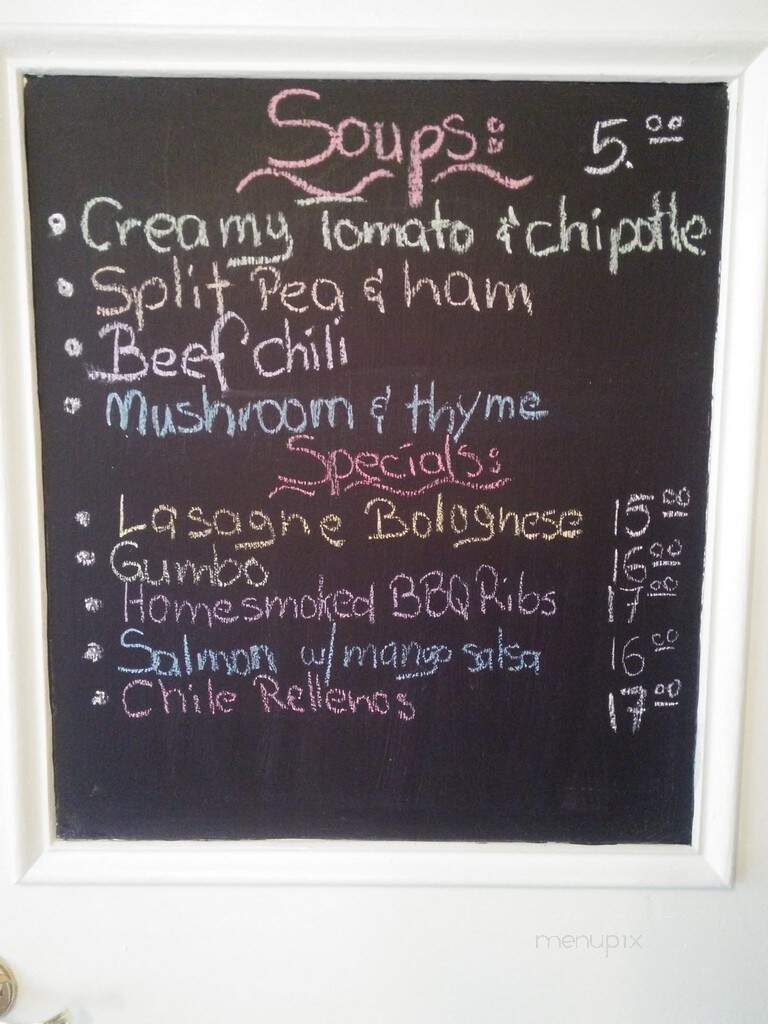 Soups: 5.00
• Creamy Tomato & chipotle
• Split Pea & ham
• Beef chili
• Mushroom & thyme
Specials:
• Lasagne Bolognese 15.00
• Gumbo 16.00
• Homesmoked BBQ Ribs 17.00
• Salmon w/ mango salsa 16.00
• Chile Rellenos 17.00
menupix